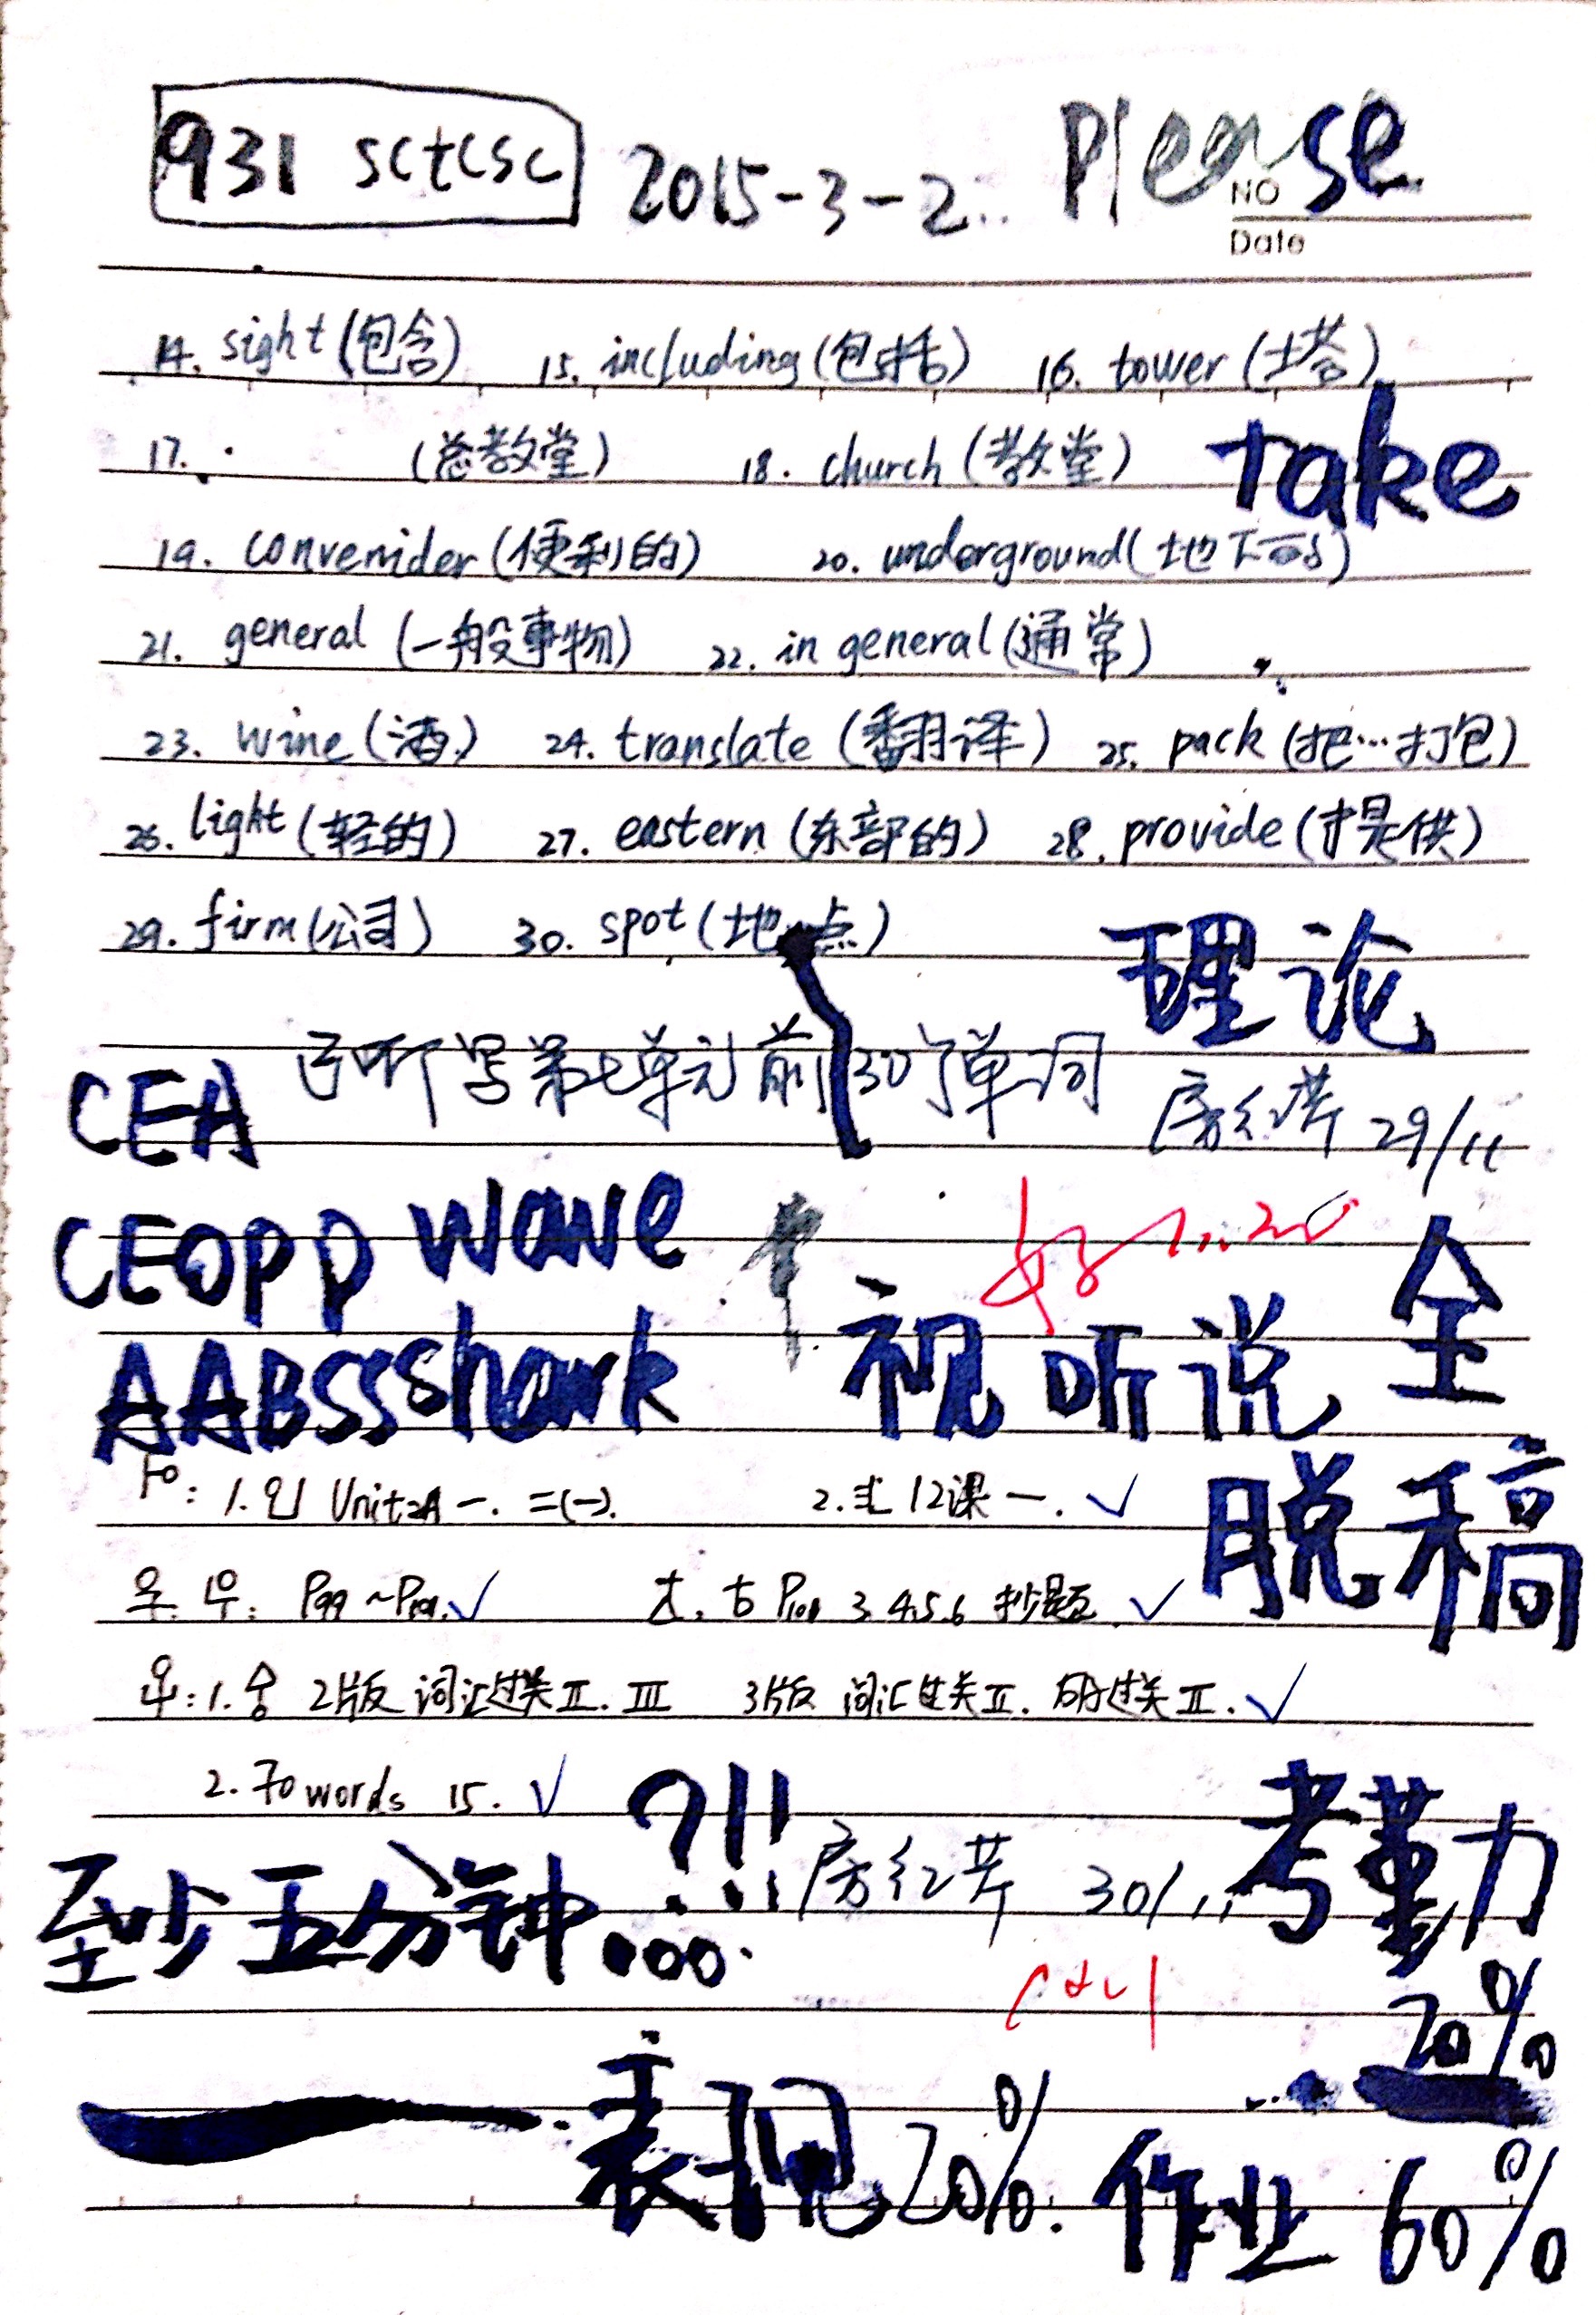 931 sctcsc 2015-3-2 Please
NO
Date
14. sight (包含) 15. including (包括) 16. tower (塔)
take
17. (总教堂) 18. church (教堂)
19. convenider (便利的) 20. underground (地下的)
21. general (一般事物) 22. in general (通常)
23. wine (酒) 24. translate (翻译) 25. pack (把…打包)
26. light (轻的) 27. eastern (东部的) 28. provide (提供)
29. firm (公司) 30. spot (地点)
理论
CEA 听写第七单元前30个单词 29/11
CEOPP wave 好
AABSSShark 视听说 全
1. Unit 一. 二(一). 2. 12课 一. ✓
脱稿
P99~ ✓ 3.4.5.6 抄题 ✓
1. 2版 词汇过关Ⅱ. Ⅲ 3版 词汇过关Ⅱ. 过关Ⅱ. ✓
2. 70 words 15. ✓
?!!
至少五分钟... 30/11 考勤力
20%
表现 20%. 作业 60%